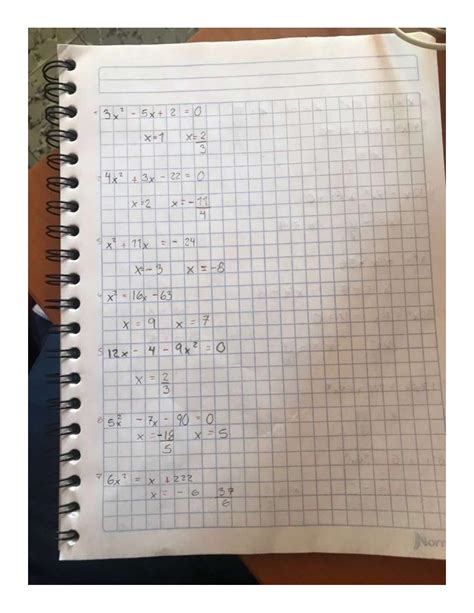 1 3x² - 5x + 2 = 0
x=1 x=2/3
2 4x² + 3x - 22 = 0
x=2 x=-11/4
3 x² + 11x = -24
x=-3 x=-8
4 x² = 16x - 63
x = 9 x = 7
5 12x - 4 - 9x² = 0
x = 2/3
6 5x² - 7x - 90 = 0
x = -18/5 x = 5
7 6x² = x + 222
x = - 6 37/6
Norm